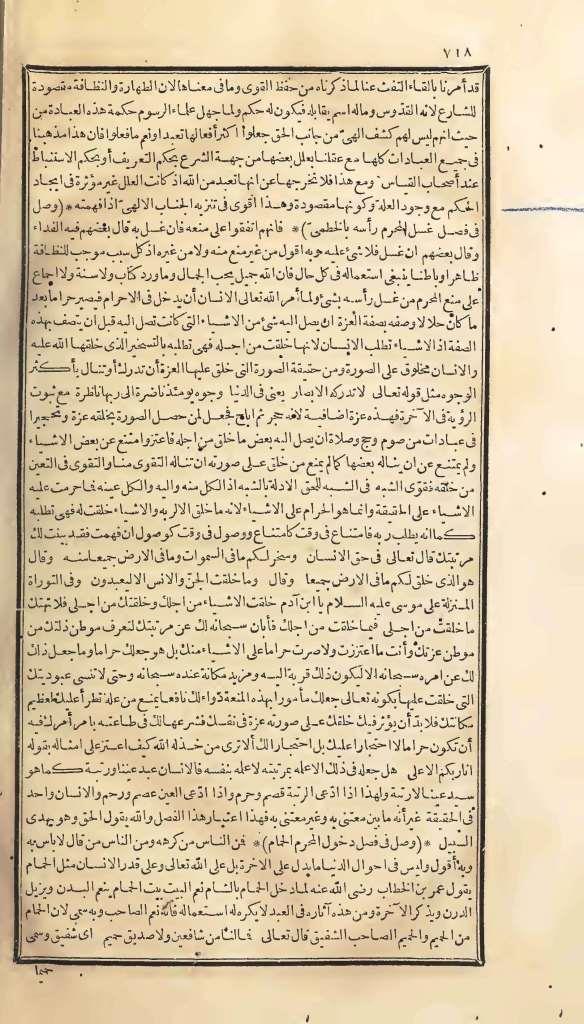 ٧١٨
قد أمرنا بالقاء التفث عنا لما ذكرناه من حفظ القوى وما فى معناها لان الطهارة والنظافة مقصودة
للشارع لانه القدوس وماله اسم يقابله فيكون له حكم ولما جهل علماء الرسوم حكمة هذه العبادة من
حيث انهم ليس لهم كشف الهىّ من جانب الحق جعلوا أكثر أفعالها تعبدا ونعم ما فعلوا فان هذا مذهبنا
فى جميع العبادات كلها مع عقلنا بعلل بعضها من جهة الشرع بحكم التعريف أو بحكم الاستنباط
عند أصحاب القياس ومع هذا فلا نخرجها عن انها تعبد من الله اذ كانت العلل غير مؤثرة فى ايجاد
الحكم مع وجود العلة وكونها مقصودة وهذا أقوى فى تنزيه الجناب الالهىّ اذا فهمته *(وصل
فى فصل غسل المحرم رأسه بالخطمى)* فانهم اتفقوا على منعه فان غسل به قال بعضهم فيه الفداء
وقال بعضهم ان غسل فلا شئ عليه وبه اقول من غير منع منه ولا من غيره اذ كل سبب موجب للنظافة
ظاهرا وباطنا ينبغى استعماله فى كل حال فان الله جميل يحب الجمال وما ورد كتاب ولا سنة ولا اجماع
على منع المحرم من غسل رأسه بشئ ولما أمر الله تعالى الانسان أن يدخل فى الاحرام فيصير حراما بعد
ما كان حلالا وصفه بصفة العزة ان يصل اليه شئ من الاشياء التى كانت تصل اليه قبل ان يتصف بهذه
الصفة اذ الاشياء تطلب الانسان لانها خلقت من اجله فهى تطلبه بالتسخير الذى خلقها الله عليه
والانسان مخلوق على الصورة ومن حقيقة الصورة التى خلق عليها العزة أن تدرك أو تنال بأكثر
الوجوه مثل قوله تعالى لا تدركه الابصار يعنى فى الدنيا وجوه يومئذ ناضرة الى ربها ناظرة مع ثبوت
الرؤية فى الآخرة فهذه عزة اضافية لانه حجر ثم اباح فجعل لمن حصل الصورة بخلقه عزة وتحجيرا
فى عبادات من صوم وحج وصلاة ان يصل اليه بعض ما خلق من اجله فاعتز وامتنع عن بعض الاشياء
ولم يمتنع عن ان يناله بعضها كما لم يمنع من خلق على صورته ان تناله التقوى منا والتقوى فى التعين
من خلقه فقوى الشبه فى الشبه للحق الادلة بالشبه اذ الكل منه واليه والكل عينه فما حرمت عليه
الاشياء على الحقيقة وانما هو الحرام على الاشياء لانه ما خلق الا لربه والاشياء خلقت له فهى تطلبه
كما انه يطلب ربه فامتناع فى وقت كامتناع ووصول فى وقت كوصول ان فهمت فقد بينت لك
مرتبتك قال تعالى فى حق الانسان وسخر لكم ما فى السموات وما فى الارض جميعا منه وقال
هو الذى خلق لكم ما فى الارض جميعا وقال وما خلقت الجنّ والانس الا ليعبدون وفى التوراة
المنزلة على موسى عليه السلام يا ابن آدم خلقت الاشياء من اجلك وخلقتك من اجلى فلا تهتك
ما خلقت من اجلى فيما خلقت من اجلك فأبان سبحانه لك عن مرتبتك لتعرف موطن ذلتك من
موطن عزتك وأنت ما اعتززت ولا صرت حراما على الاشياء منك بل هو جعلك حراما وما جعل ذلك
لك عن امره سبحانه الا ليكون ذلك قربة اليه ومزيد مكانة عنده سبحانه وحتى لا تنسى عبوديتك
التى خلقت عليها بكونه تعالى جعلك مأمورا بهذه المنعة دواء لك نافعا يمنع من علة تطرأ عليك لعظيم
مكانتك فلا بد أن يؤثر فيك خلقك على صورته عزة فى نفسك فشرعها لك فى طاعته بامر أمرك فيه
أن تكون حراما لا احتجارا عليك بل احتجارا لك ألا ترى من خذله الله كيف اعتز على امثاله بقوله
انا ربكم الاعلى هل جعله فى ذلك الا علمه بمرتبته لا علمه بنفسه فالانسان عبد عينا ورتبة كما هو
سيد عينا لا رتبة ولهذا اذا ادّعى الرتبة قصم وحرم واذا ادّعى العين عصم ورحم والانسان واحد
فى الحقيقة غير أنه ما بين معتنى به وغير معتنى به فهذا اعتبار هذا الفصل والله يقول الحق وهو يهدى
السبيل *(وصل فى فصل دخول المحرم الحمام)* فن الناس من كرهه ومن الناس من قال لا باس به
وبه أقول وليس فى احوال الدنيا ما يدل على الاخرة بل على الله تعالى وعلى قدر الانسان مثل الحمام
يقول عمر بن الخطاب رضى الله عنه لما دخل الحمام بالشام نعم البيت بيت الحمام ينعم البدن ويزيل
الدرن ويذكر الآخرة ومن هذه آثاره فى العبد لا يكره له استعماله فانه نعم الصاحب وبه سمى لان الحمام
من الحميم والحميم الصاحب الشفيق قال تعالى فما لنا من شافعين ولا صديق حميم اى شفيق وسمى
حميما